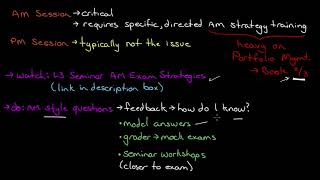 AM Session → critical
→ requires specific, directed AM strategy training
PM Session → typically not the issue
heavy on
Portfolio Mgmt.
→ Book
→ watch: L3 Seminar AM Exam Strategies
(link in description box)
→ do: AM style questions → feedback → how do I know?
• model answers
• grader → mock exams
• seminar workshops
(closer to exam)